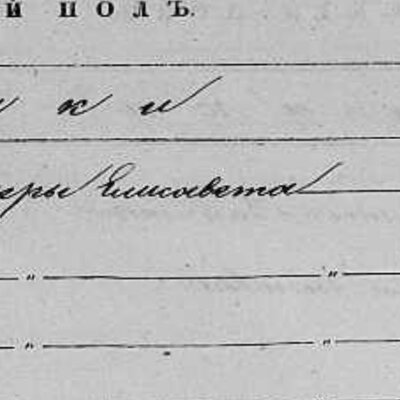 й полъ.
к и
еры Елисавета
„ „
„ „